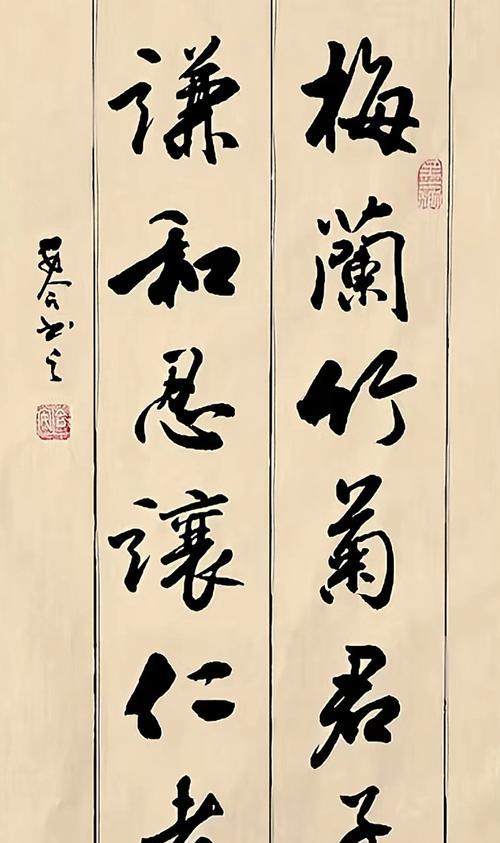 梅蘭竹菊君子
謙和忍讓仁者